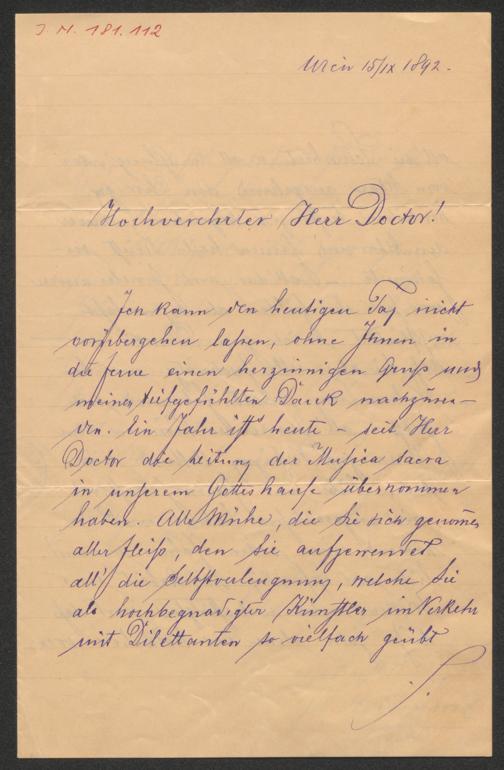 I. N. 181.112
Wien 15/IX 1892.
Hochverehrter Herr Doctor!
Ich kann den heutigen Tag nicht
vorübergehen laßen, ohne Ihnen in
die ferne einen herzinnigen Gruß und
meinen tiefgefühlten Dank nachzusen-
den. Ein Jahr ist's heute – seit Herr
Doctor die Leitung der Musica sacra
in unserem Gotteshause übernommen
haben. Alle Mühe, die Sie sich genom̅en
aller Fleiß, den Sie aufgewendet
all' die Selbstverleugnung, welche Sie
als hochbegnadigter Künstler im Verkehr
mit Dilettanten so vielfach geübt